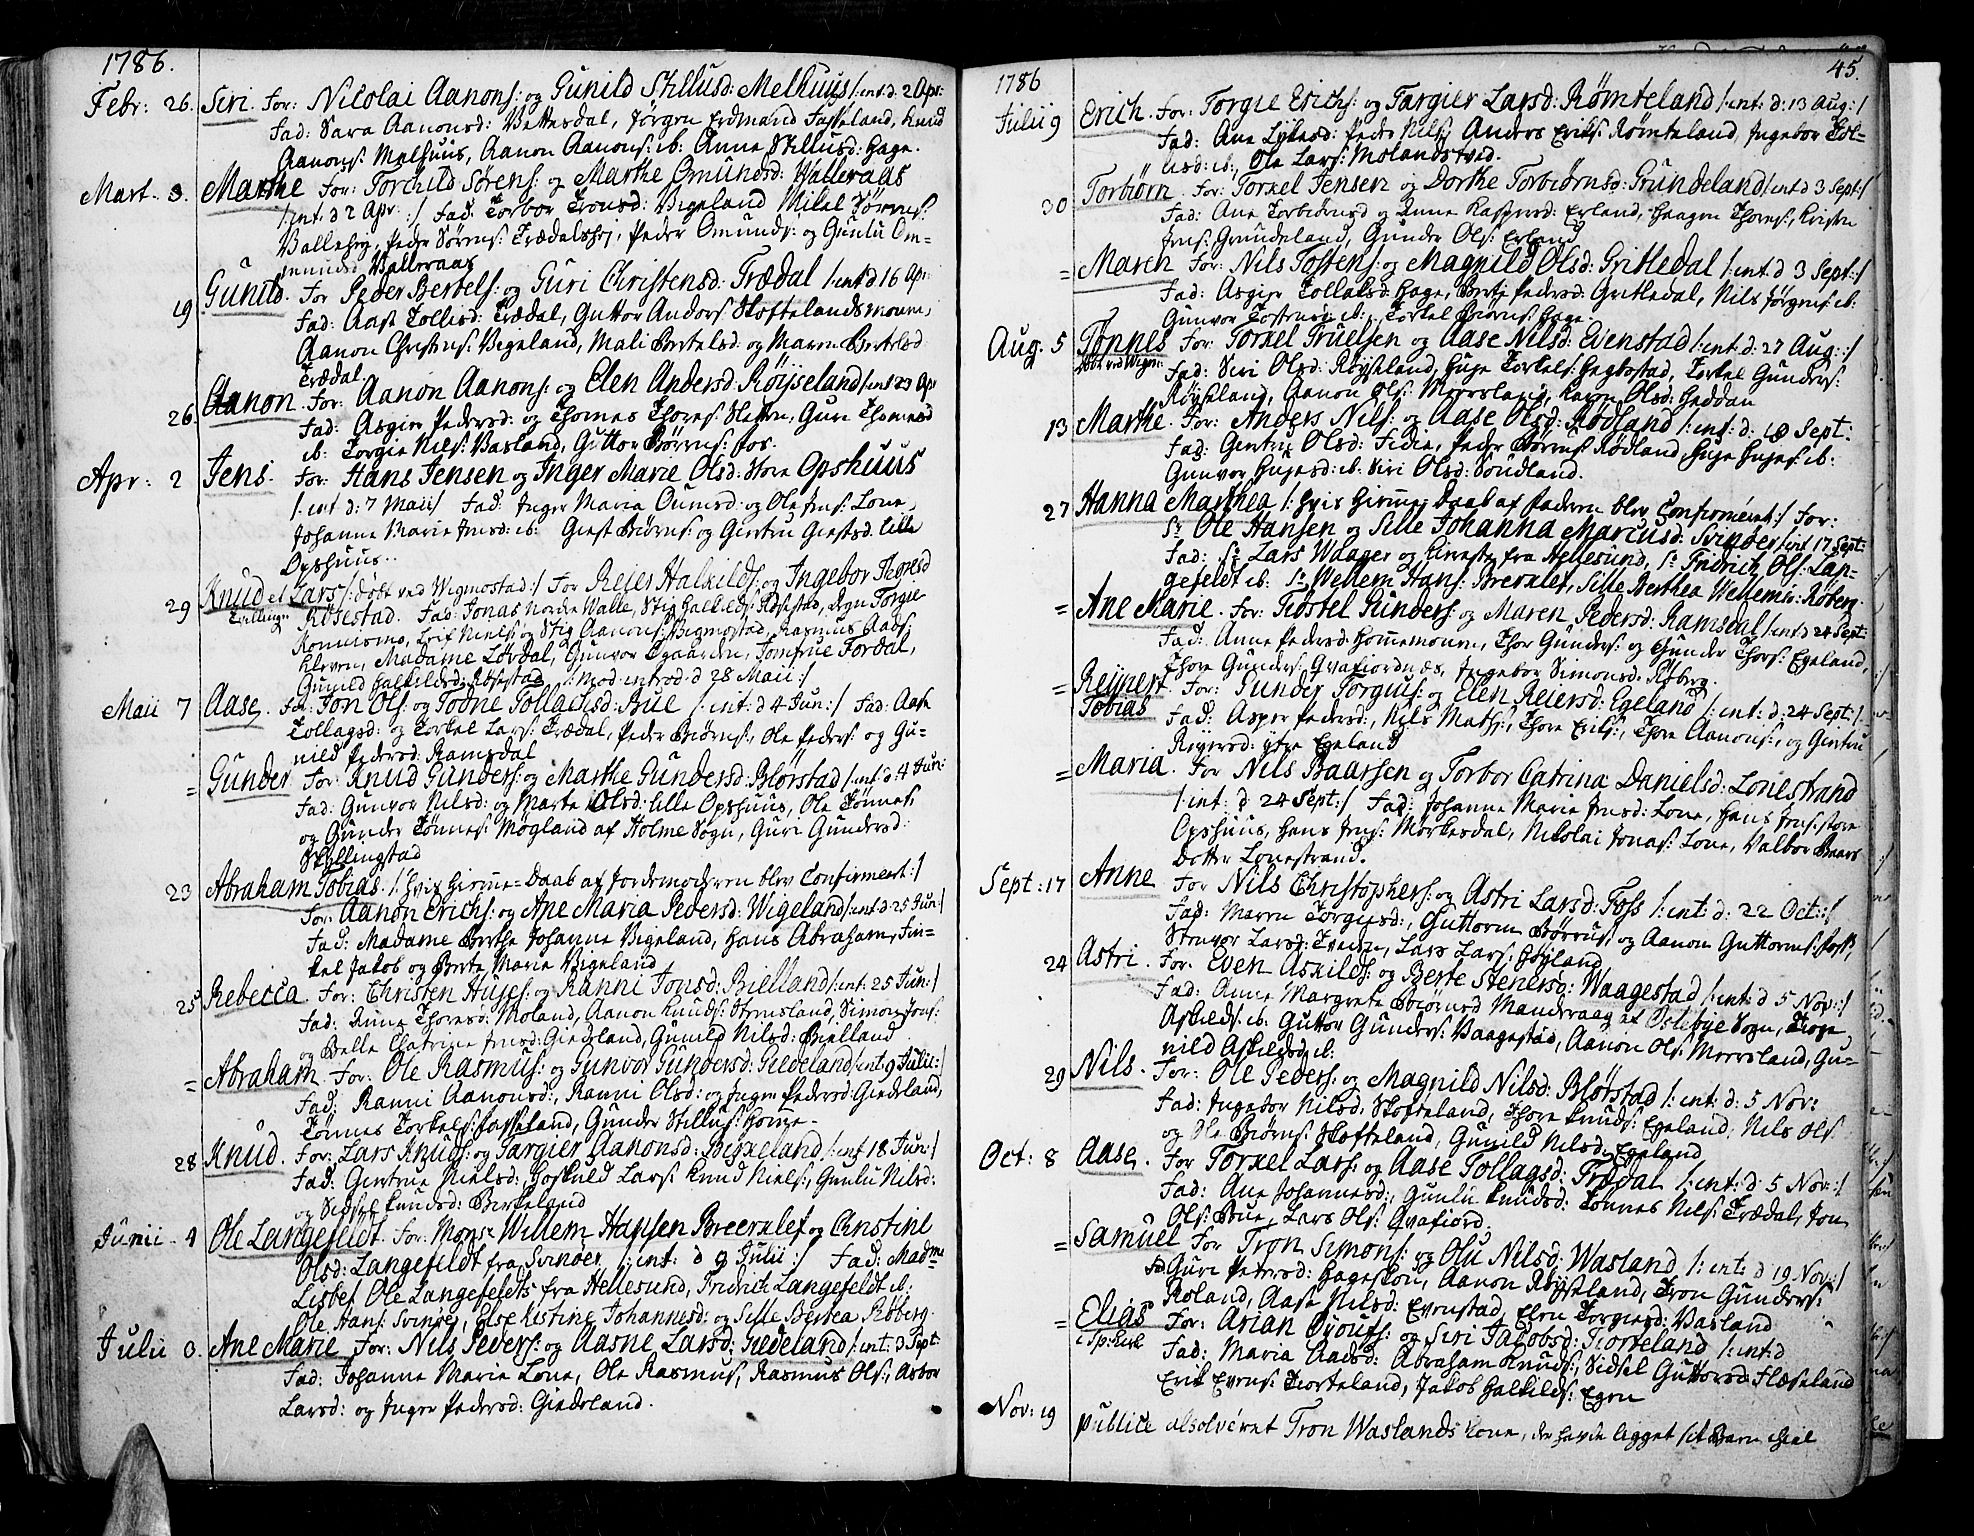 1786.
Febr: 26. Siri. For: Nicolai Aanons: og Gunild Stillusd: Melhuus /: int: d. 2 Apr:
Fad: Sara Aanonsd: Vettesdal, Jørgen Erdmand Fasseland, Knud
Aanons: Melhuus, Aanon Aanons: ib: Anne Stillusd: Hage.
Mart. 3. Marthe For: Torchild Sørens: og Marthe Omundsd: Walleraas
/: int: d 2 Apr: :/ Fad: Torbor Tronsd: Vigeland Mikel Sørens:
Peder Sørens: Trædalshej, Peder Omunds: og Gunlu Om-
mundsd Walleraas
19 Gunild. For Peder Bertels: og Guri Christensd: Trædal /: int d 16 Apr:
Fad: Aase Tollisd: Trædal, Guttor Anders: Skoftelandsmoene,
Aanon Christens: Vigeland, Mali Bertelsd: og Maren Bertelsd
Trædal.
26. Aanon. For: Aanon Aanons: og Elen Andersd: Røijseland /: int 23 Apr
Fad: Asgier Pedersd: og Thomas Thores: Guri Thomesd
ib: Torgie Nils: Vasland, Guttor Børens: Fos.
Apr: 2 Jens. For: Hans Jensen og Inger Marie Olsd: Store Opshuus
/: int d: 7 Maii/ Fad: Inger Maria og Ole Jens: Lone,
Johanne Marie Jensd: ib: Giest Biørns: og Giertru Giestsd: lille
Opshuus..
29 Knud et Lars /: døbt ved Wigmostad :/ For Reier Halkilds: og Ingebor Tegiesd
Tvillinger Røsestad. Fad: Jonas Nordre Walle, Stig Halkilds: Røsestad, Degn Torgie
Erik Niels: og Stig Aanons: Vigmostad, Rasmus Aads:
Kleven, Madame Lørdal, Gunvor Øgaarden, Jomfrue Fordal,
Gunild Halkildsd: Røsestad /: Mod: introd: d 28 Maii :/
Maii 7 Aase. For: Jon Ols: og Todne Tollachsd: Bue /: int: d 4 Jun: :/ Fad: Aase
Tollagsd: og Torkel Lars: Trædal, Peder Biørns:, Ole Peders: og Gu-
nild Pedersd: Ramsdal
= Gunder For: Knud Gunders: og Marthe Gundersd: Blørstad /: int: d. 4 Jun:
Fad: Gunvor Nilsd: og Marte Olsd: lille Opshuus, Ole Tønnes:
og Gunder Tønnes: Møgland af Holme Sogn, Guri Gundersd:
Skyllingstad
23 Abraham Tobias. /: hvis Hieme-Daab af Jordemoderen blev Confirmeert :/
For: Aanon Erichs: og Ane Maria Pedersd: Wigeland /: int: d 25 Jun: :/
Fad: Madame Berthe Johanne Vigeland, Hans Abraham, Fin-
kel Jakob og Berte Maria Vigeland
25 Rebecca. For: Christen Hujes: og Ranni Jonsd: Bielland /: int: 25 Jun: :/
Fad: Rune Thoresd: Moland, Aanon Knuds: Stemsland, Simon Jons:
og Belle Catrine Jensd: Giedeland, Gunild Nilsd: Bielland
= Abraham For: Ole Rasmus: og Gunvor Gundersd: Giedeland /: int: 9 Julii: :/
Fad: Ranni Aanonsd:, Ranni Olsd: og Inger Pedersd: Giedeland,
Tønnes Torkels: Fasseland, Gunder Stillus: Homme.
28 Knud. For: Lars Knuds: og Targier Aanonsd: Birkeland /: int 18 Jun: :/
Fad: Giertrue Nielsd:, Hoskuld Lars: Knud Niels:, Gunlu Nilsd:
og Sidsel Knudsd: Birkeland
Junii 4 Ole Langefeldt. For: Monsr Willem Hansen Breerklef og Christine
Olsd: Langefeldt fra Svinøer /: int: d 9 Julii :/ Fad: Madme
Lisbet Ole Langefeldts fra Hellesund, Fridrich Langefeldt ib:
Ole Hans: Svinøer, Else Kistine Johannesd: og Sille Bertea Røberg.
Julii 3. Ane Marie For: Nils Peders: og Aasne Larsd: Giedeland /: int: 3 Sept:
Fad: Johanne Marie Lone, Ole Rasmus:, Rasmus Ols:, Asbor
Larsd: og Inger Pedersd: Giedeland.
45.
1786
Julii 9 Erich. For: Torgie Erichs: og Targier Larsd: Rømteland /: int: d: 13 Aug: /
Fad: Ane Peder Nils:, Anders Eriks: Rømteland, Ingebor Tol-
lisd: ib:, Ole Lars: Molandsved.
30 Torbiørn. For: Torkel Jensen og Dorthe Torbiørnsd: Grundeland /: int d 3 Sept: /
Fad: Ane Torbiørnsd og Anne Kaspersd: Erland, Haagen Thores:, Kristen
Jens: Grundeland, Gunder Ols: Erland
= Maren For: Nils Tostens: og Magnild Olsd: Gritledal /: int: d 3 Sept: /
Fad: Asgier Tollaksd: Hage, Berte Pedersd: Gritledal, Nils Jørgens: ib:
Gunvor Tostensd ib:, Torkel Biørns: Hage.
Aug. 5 Tønnes For: Torkel Truelsen og Aase Nilsd: Evenstad /: int: d: 27 Aug: :/
døbt ved Wigm: Fad: Siri Olsd: Røysland, Huje Torkels: Hegbostad, Torkel Gunders:
Røysland, Aanon Ols: Meersland, Karen Olsd: Heddan
13 Marthe. For: Anders Nils: og Aase Olsd: Rødland /: int: d: 10 Sept:
Fad: Giertru Olsd: Fidie, Peder Biørns: Rødland, Huje Hujes: ib:
Gunvor Hujesd: ib: Siri Olsd: Soudland.
27 Hanna Marthea /: hvis Hieme-Daab af Faderen blev Confirmeret :/ For:
Sr Ole Hansen og Sille Johanna Marcusd: Svinøer /: int 17 Sept:
Fad: Sr Lars Waager og fra Hellesund, Sr Fridrich Ols: Lan-
gefeldt ib: Sr Wellem Hans: Breerklef, Sille Berthea Wellems: Røberg.
= Ane Marie. For: Tostel Gunders: og Maren Pedersd: Ramsdal /: int: d 24 Sept:
Fad: Anne Pedersd: Hommemonen, Thor Gunders: og Gunder Thors: Egeland,
Thore Gunders: Qvafiordnæs, Ingebor Simonsd: Røberg.
= Reijnert Tobias For: Gunder Torgius: og Elen Reiersd: Egeland /: int: d: 24 Sept: /.
Fad: Asger Pedersd:, Nils Mats:, Thore Eriks:, Thore Aanons:, og Giertru
Reijersd: ytre Egeland
= Maria. For Nils Baarsen og Torbor Catrina Danielsd: Lonestrand
/: int: d 24 Sept: / Fad: Johanne Marie Jensd: Lone, Hans Jens: store
Opshuus, Hans Jens: Mørkesdal, Nikolai Jonas: Lone, Valbor Baars
Dotter Lonestrand.
Sept: 17 Anne For Nils Christophers: og Astri Larsd: Foss /: int: d: 22 Oct: :/
Fad: Maren Torgiesd:, Guttorm Børrus: og Aanon Guttorms: Foss,
Stenvor Larsd: Tveden, Lars Lars: Høyland
24 Astri. For: Even Askilds: og Berte Stenersd: Waagestad /: int: d 5 Nov: /
Fad: Anne Margrete Biørnsd Mandraag af Oslebye Sogn, Tron
Askilds: ib: Guttor Gunders: Vaagestad, Aanon Ols: Meersland, Gu-
nild Askildsd ib:
29 Nils. For: Ole Peders: og Magnild Nilsd: Blørstad /: int: d: 5 Nov:
Fad: Ingebor Nilsd: Skofteland, Thore Knuds: Egeland, Nils Ols:
og Ole Biørns: Skofteland, Gunild Nilsd: Egeland
Oct: 8 Aase. For Torkel Lars: og Aase Tollagsd: Trædal /: int: d: 5 Nov: /
Fad: Ane Johannesd:, Gunlu Knudsd: Tønnes Nils: Trædal, Jon
Ols: Bue, Lars Ols: Qvafiord.
= Samuel For Tron Simons: og Olu Nilsd: Wasland /: int: d 19 Nov: /
Fad Guri Pedersd: Hageskou, Aanon Røysland, Tron Gunders:
Roland, Aase Nilsd: Evenstad, Elen Torgiesd: Vasland
= Elias For: Arian og Siri Jacobsd: Tjorteland /: int: d
i Sp: Kirk Fad: Maria Aadsd: Abraham Knuds:, Sidsel Guttorsd: Flæseland
Erik Evens: Tjorteland, Jakob Halkilds: Egen
Nov: 19 publice absolveret Tron Waslands Kone, der havde ligget sit Barn ihiel